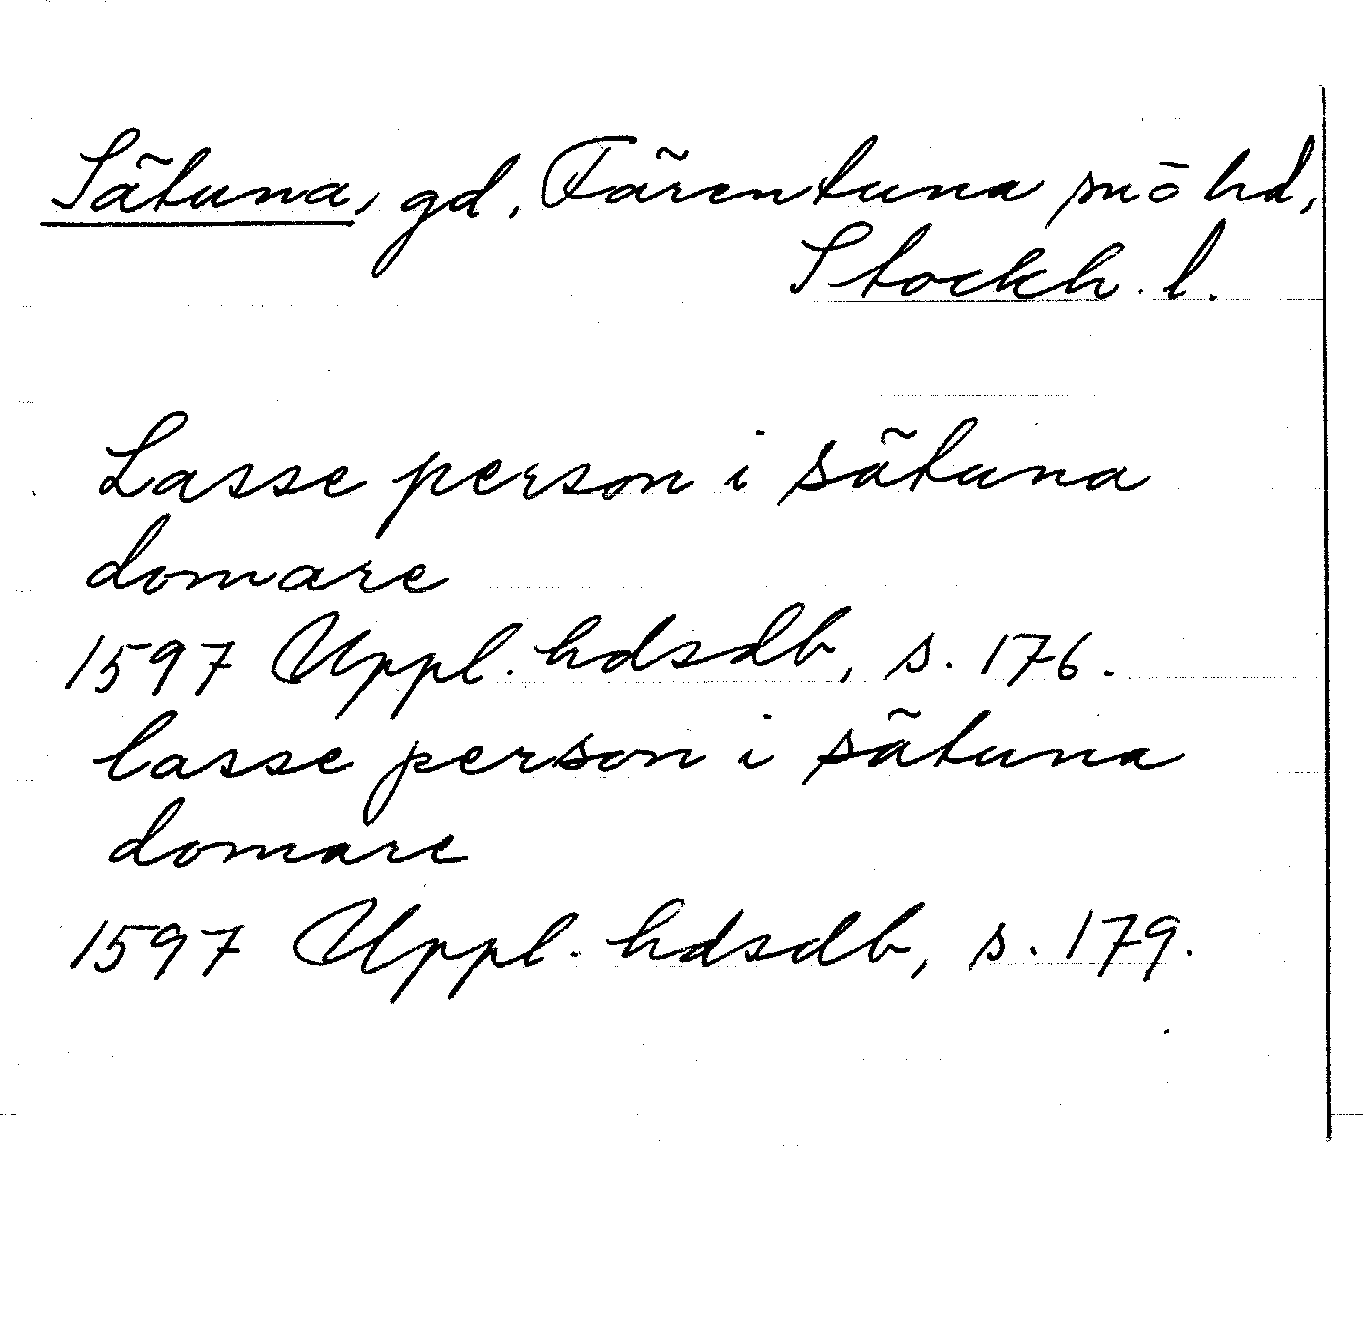 Sätuna, gd, Färentuna snö hd,
Stockh. l.
Lasse person i sätuna
domare
1597 Uppl. hdsdb, s. 176.
lasse person i sätuna
domare
1597 Uppl. hdsdb, s. 179.